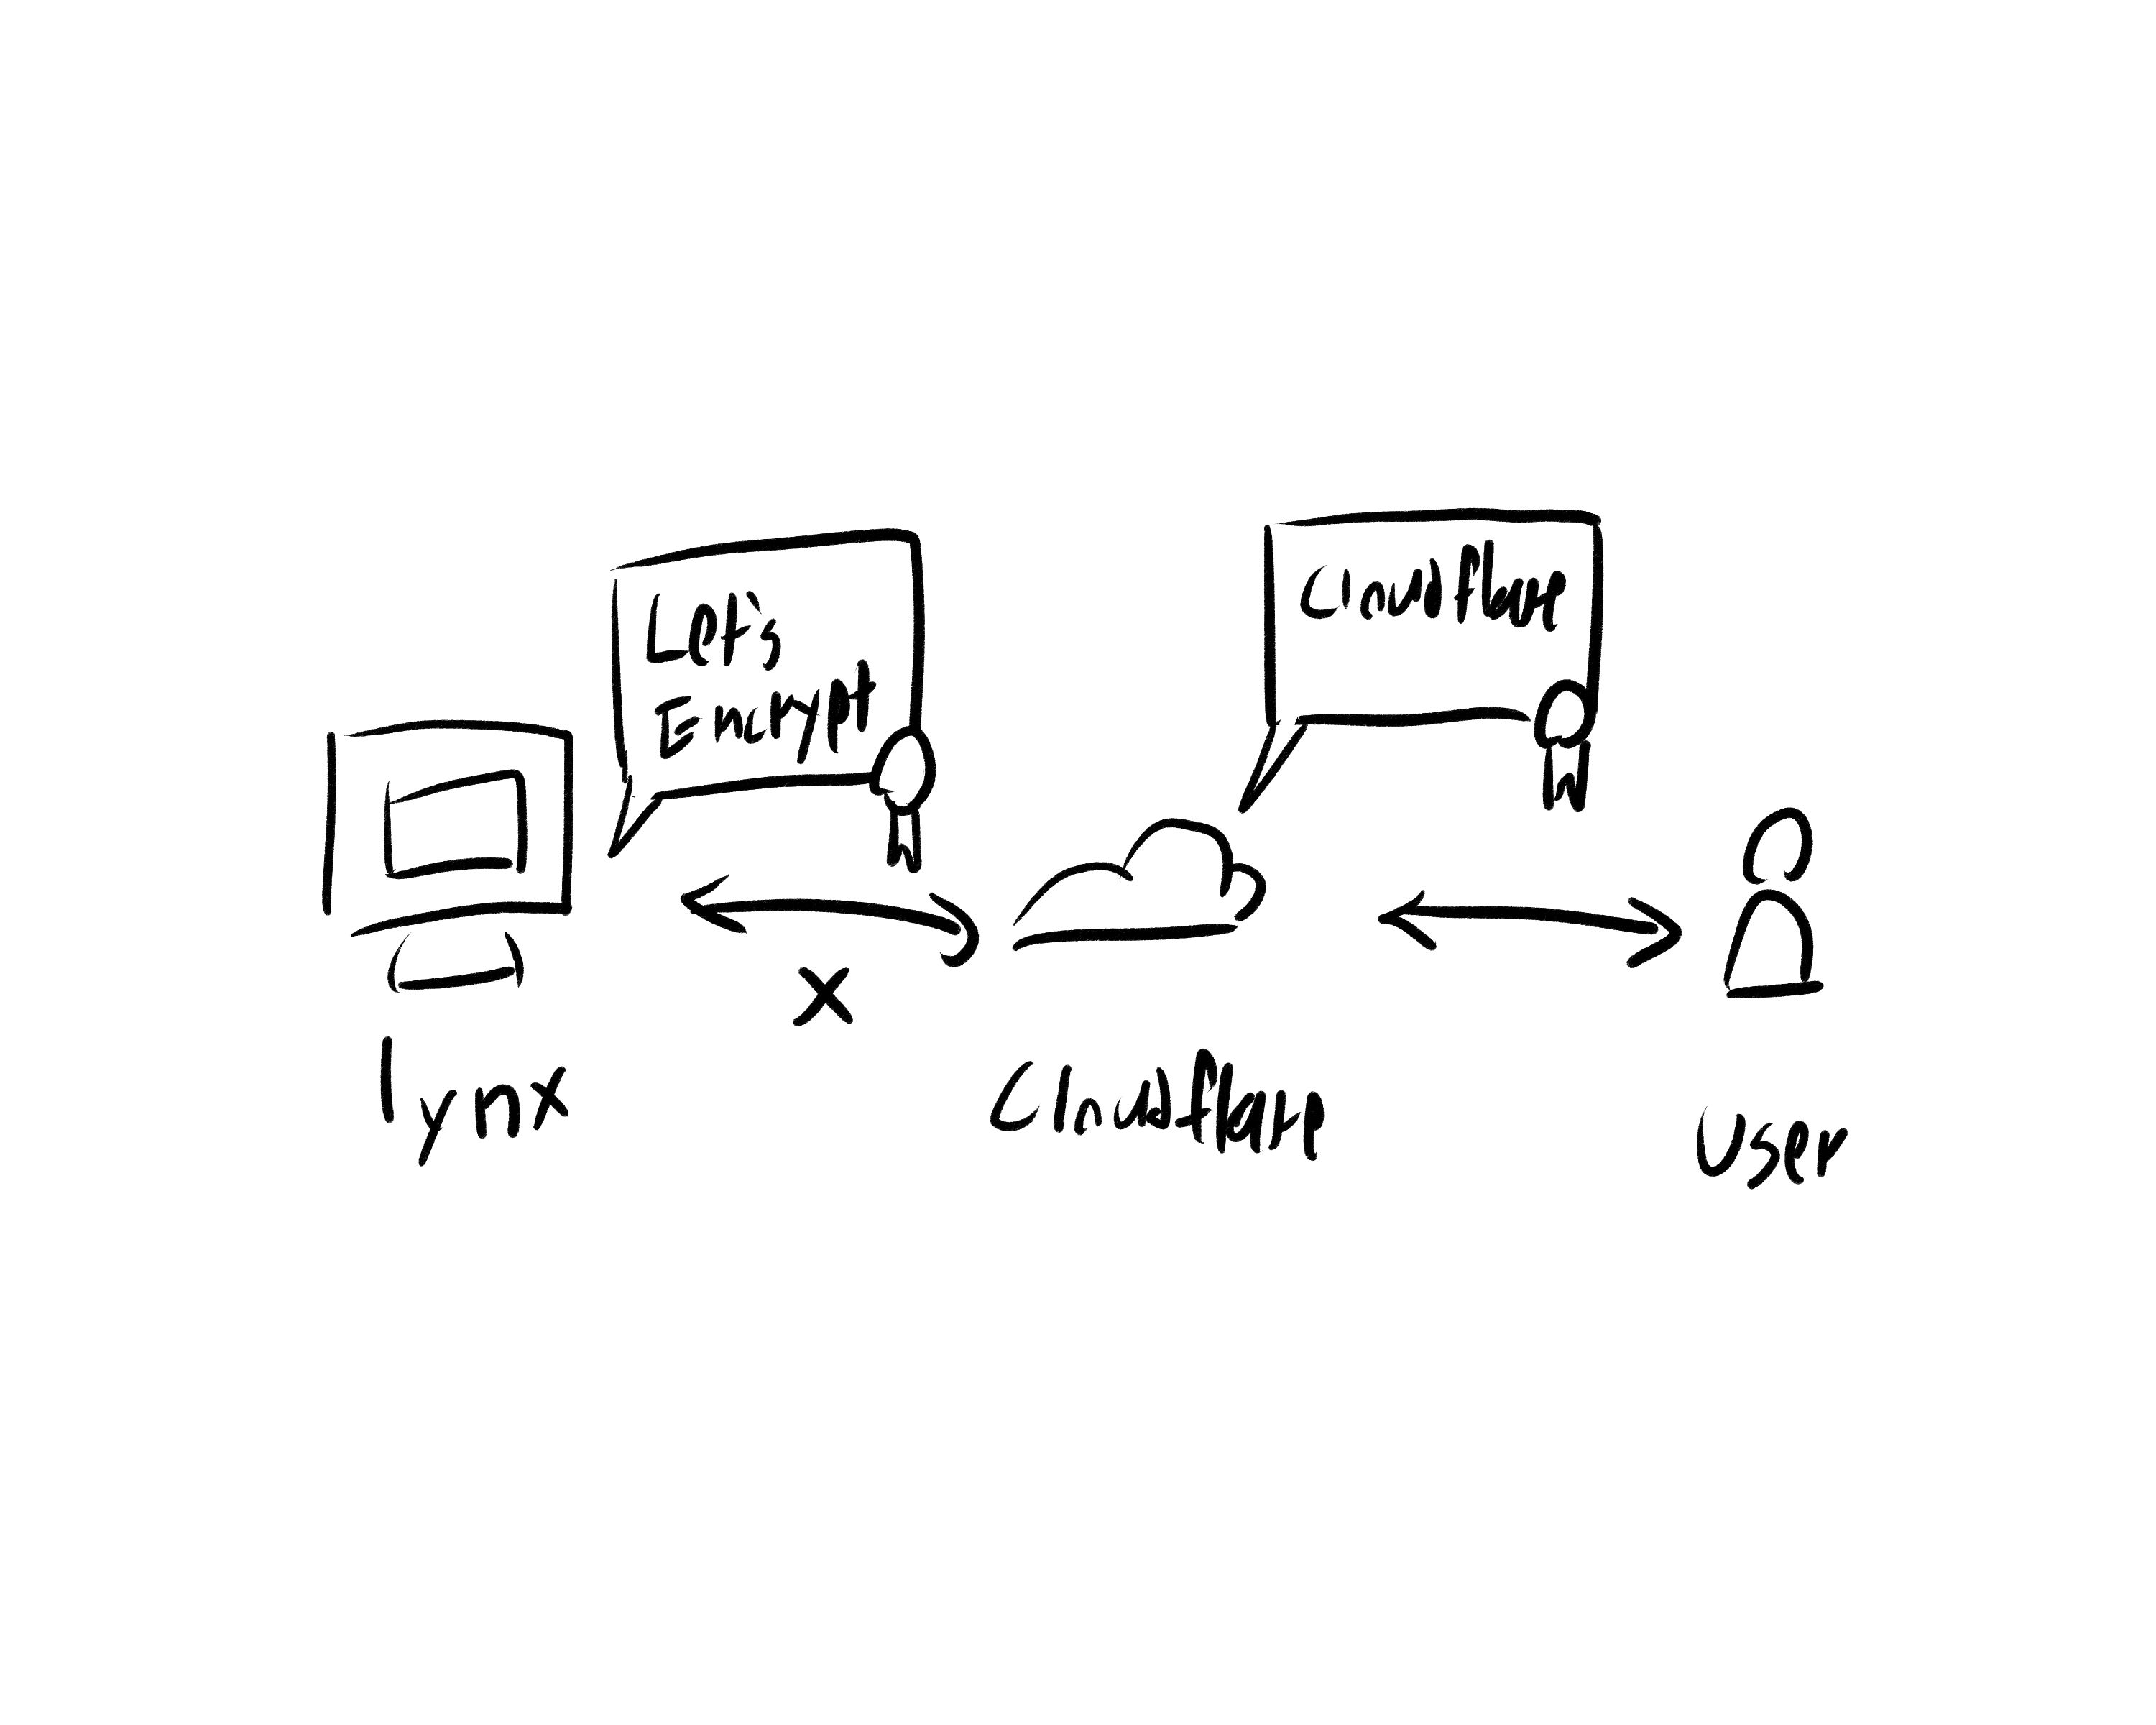 Let's
Encrypt
Cloudflare
x
lynx
Cloudflare
User